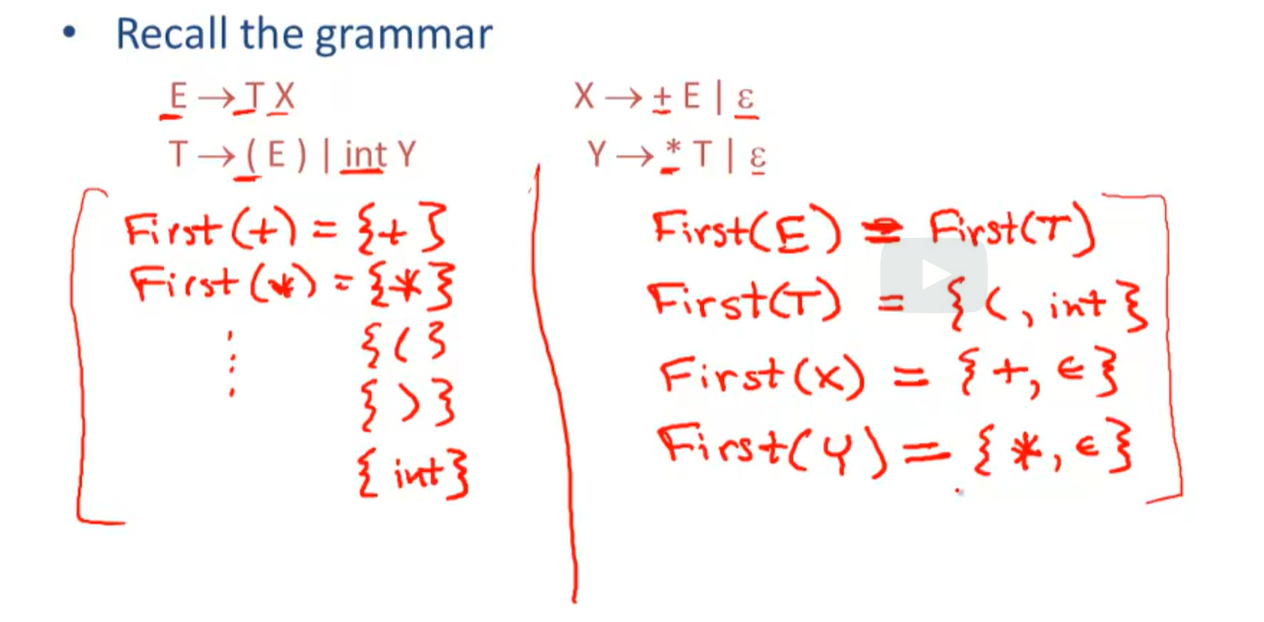 • Recall the grammar
E → T X X → + E | ε
T → ( E ) | int Y Y → * T | ε
First(+) = {+}
First(*) = {*}
⋮ {(}
{)}
{int}
First(E) = First(T)
First(T) = {(, int}
First(X) = {+, ϵ}
First(Y) = {*, ϵ}